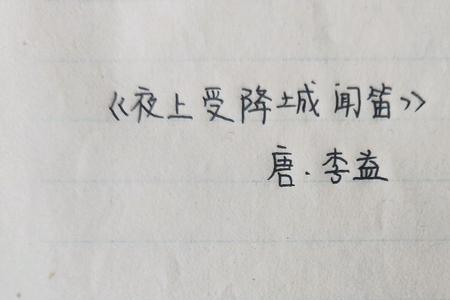 《夜上受降城闻笛》
唐.李益